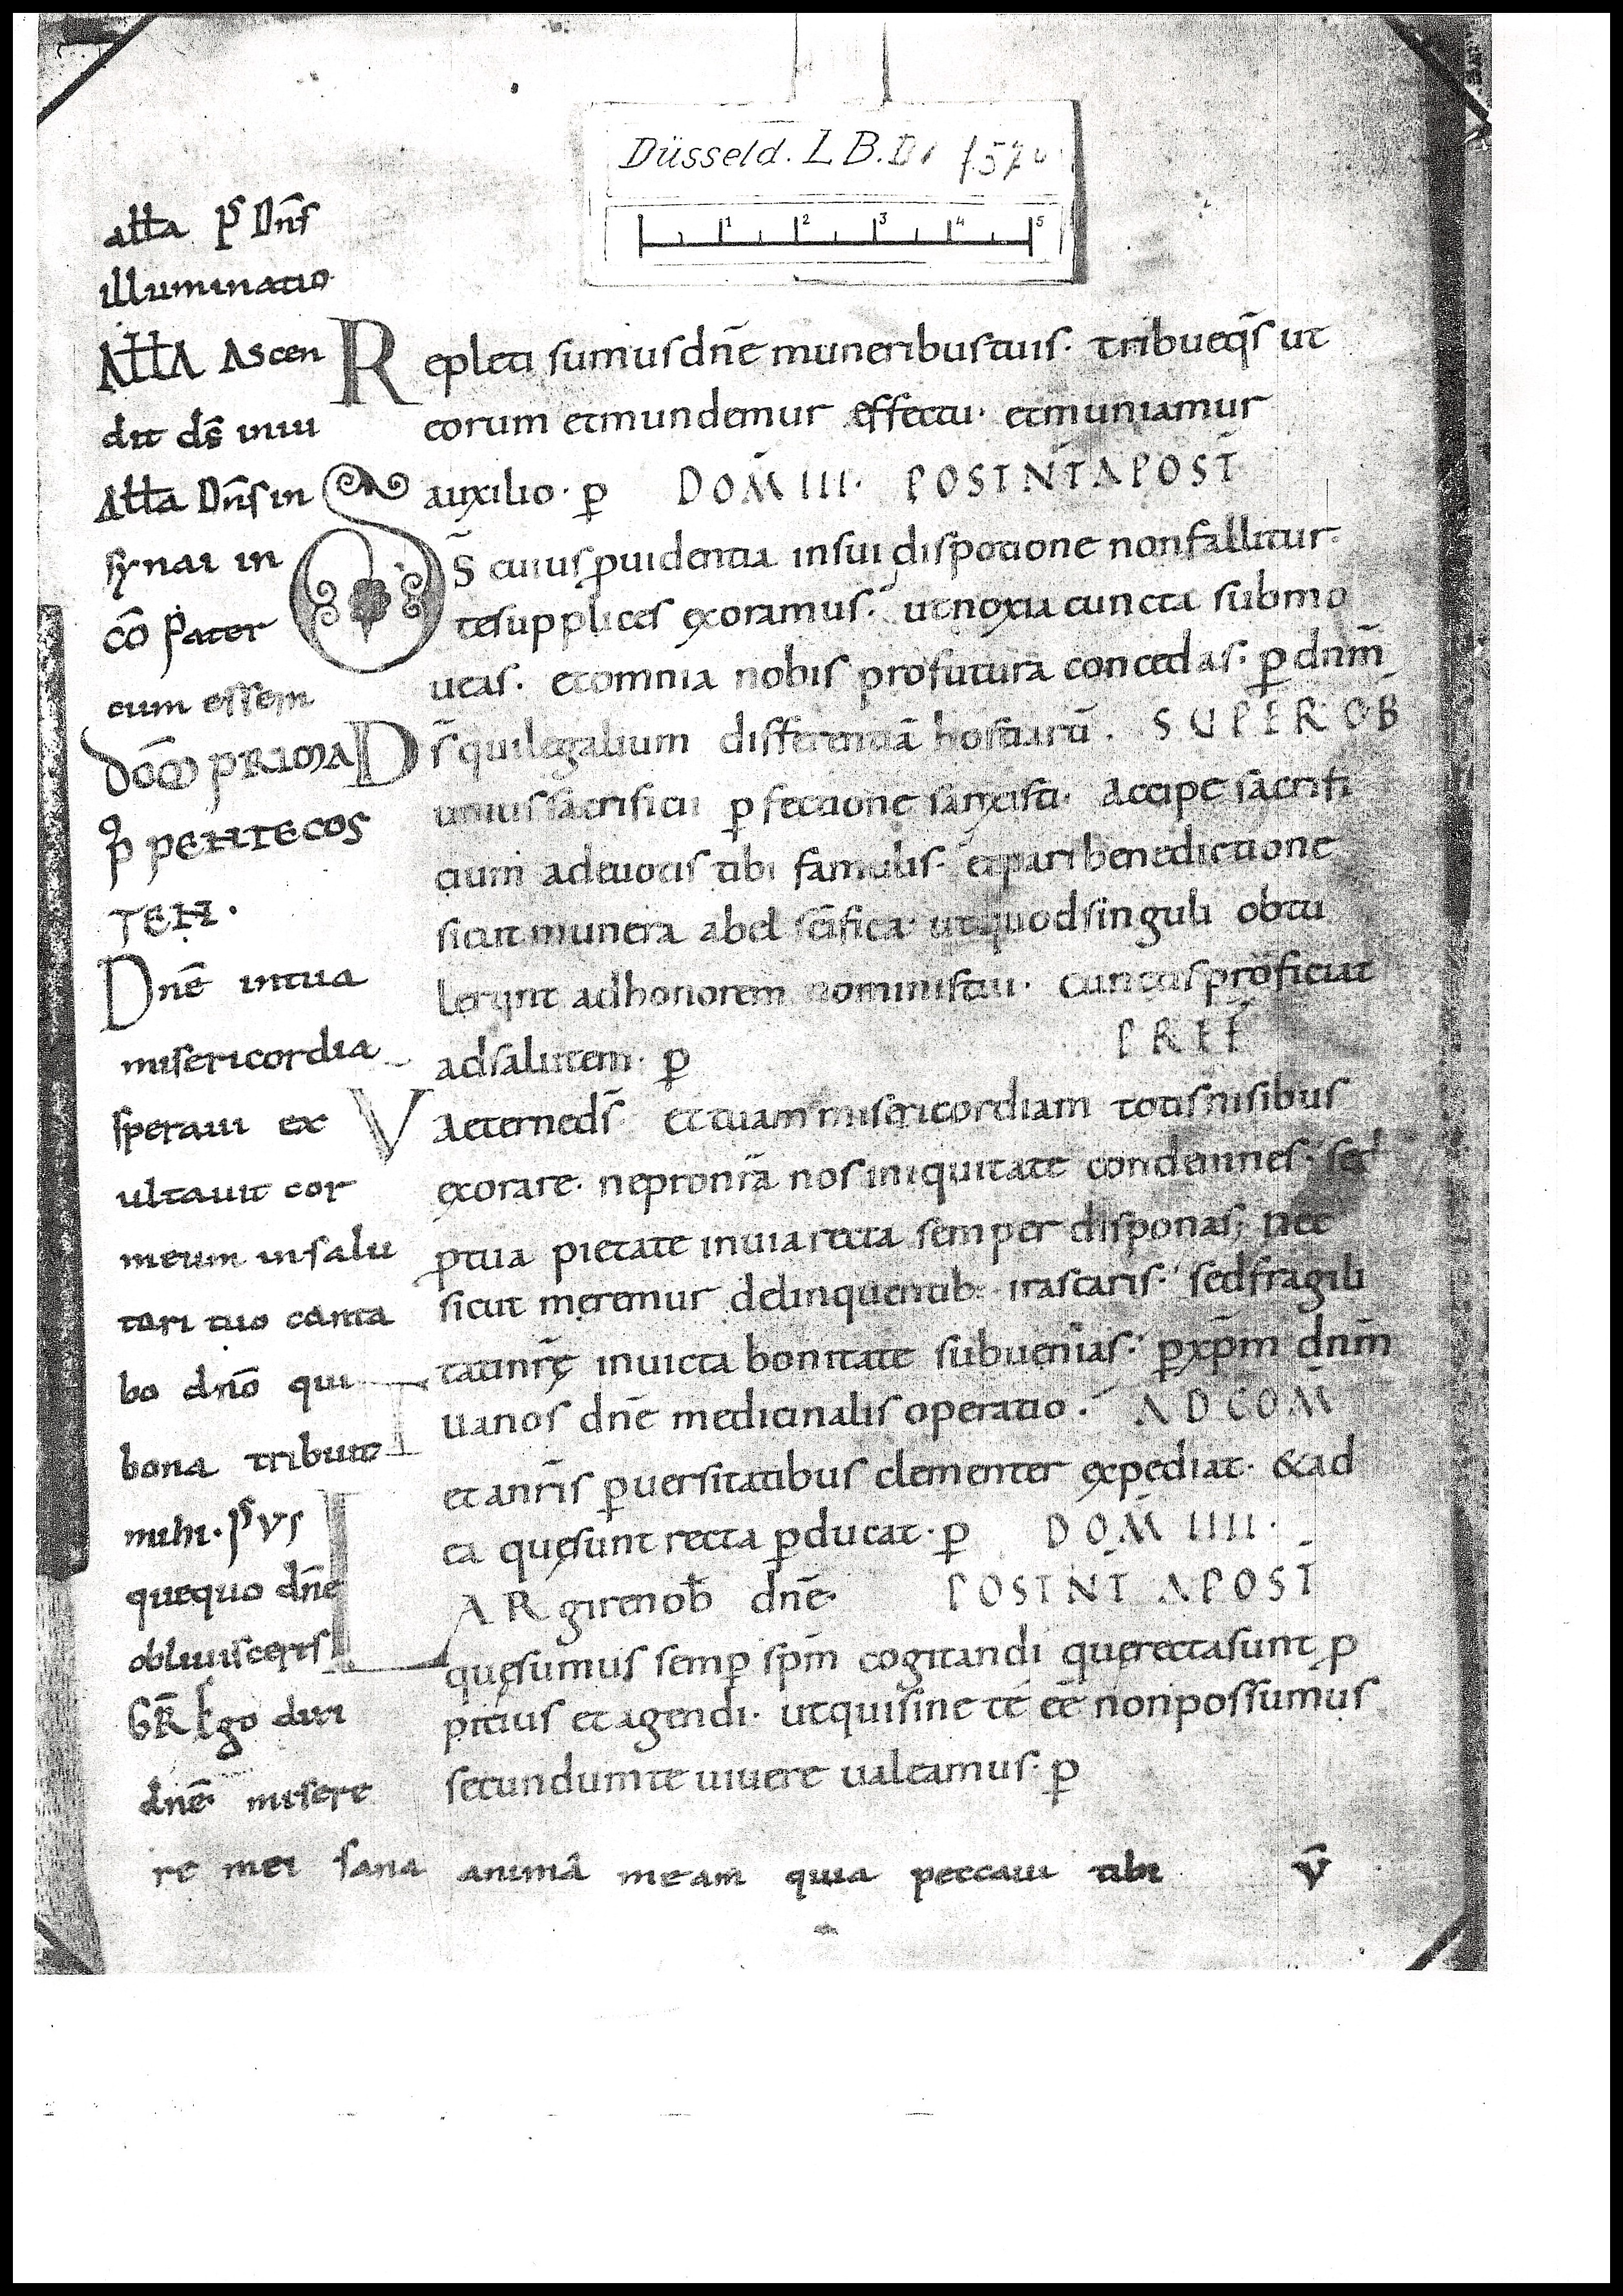 Düsseld. L B. D1
1 2 3 4 5
all̄a P̄S Dn̄s
illuminatio
All̄A Ascen
dit ds̄ in iu
All̄a Dn̄s in
synai in
cō Pater
cum essem
DOM̄ PRIMA
p̄ PENTECOS
TEN.
Dnē in tua
misericordia
speraui ex
ultauit cor
meum in salu
tari tuo canta
bo dnō qui
bona tribuit
mihi. P̄S VS
quequo dnē
obliuisceris
GR̄ Ego dixi
dnē misere
re mei sana animā meam quia peccaui tibi V̄
Repleti sumus dnē muneribus tuis. tribue qs̄ ut
eorum et mundemur effectu. et muniamur
auxilio. p̄ DOM̄ III. POST NT̄ APOST̄
Ds̄ cuius ꝓuidentia in sui dispotione non fallitur.
te supplices exoramus. ut noxia cuncta submo
ueas. et omnia nobis profutura concedas. ꝑ dnm̄
Ds̄ qui legalium differentiā hostiarū. SUPER OB̄
unius sacrificii ꝑfectione sanxisti. Accipe sacrifi
cium a deuotis tibi famulis. et pari benedictione
sicut munera abel sc̄ifica. ut quod singuli obtu
lerunt ad honorem nominis tui. cunctis proficiat
ad salutem. ꝑ PREF̄
V Aeterne ds̄. Et tuam misericordiam totis nisibus
exorare. ne pro nr̄a nos iniquitate condemnes. sed
ꝓ tua pietate in uia recta semper disponas; nec
sicut meremur delinquentib. irascaris. sed fragili
tati nr̄ę inuicta bonitate subuenias. ꝑ xp̄m dnm̄
Tua nos dnē medicinalis operatio. AD COM̄
et a nr̄is ꝑuersitatibus clementer expediat. & ad
ea quę sunt recta ꝑducat. ꝑ DOM̄ IIII.
LARgire nob̄ dnē. POST NT̄ APOST̄
quęsumus semꝑ spm̄ cogitandi quę recta sunt ꝓ
pitius et agendi. ut qui sine te eē non possumus
secundum te uiuere ualeamus. ꝑ